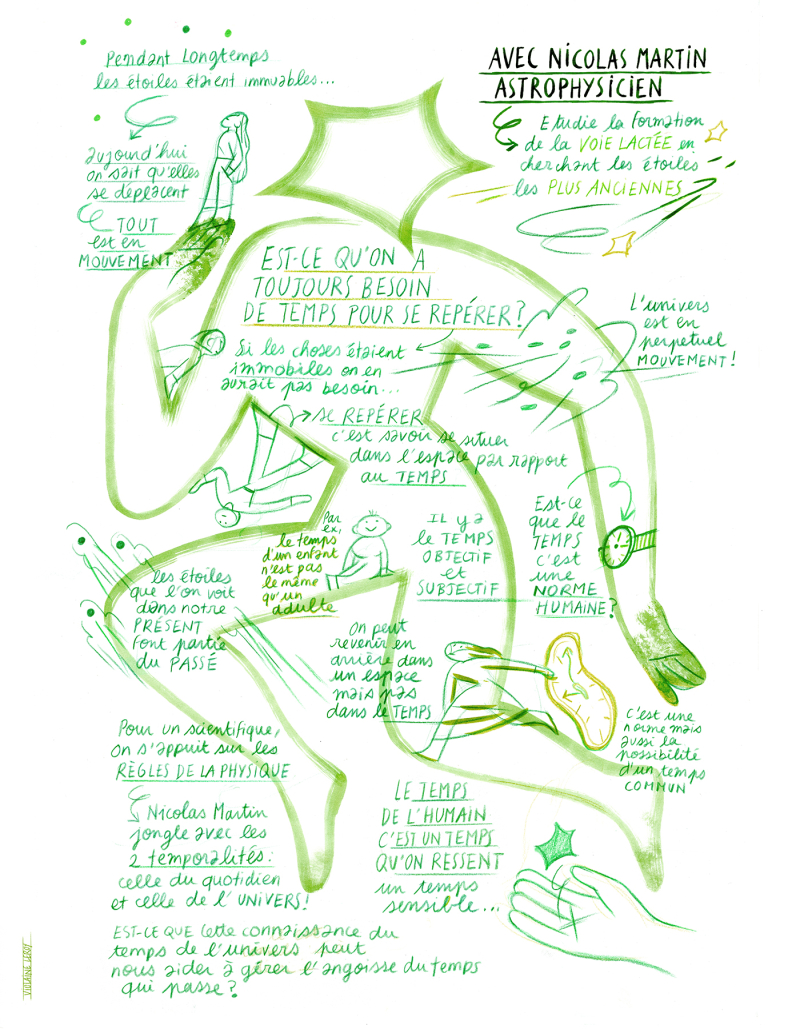 Pendant Longtemps
les étoiles étaient immuables...
AVEC NICOLAS MARTIN
ASTROPHYSICIEN
Etudie la formation
de la VOIE LACTÉE en
cherchant les étoiles
les PLUS ANCIENNES
aujourd'hui
on sait qu'elles
se déplacent
TOUT
est en
MOUVEMENT
EST-CE QU'ON A
TOUJOURS BESOIN
DE TEMPS POUR SE REPÉRER?
L'univers
est en
perpetuel
MOUVEMENT!
Si les choses étaient
immobiles on en
aurait pas besoin...
SE REPÉRER
c'est savoir se situer
dans l'espace par rapport
au TEMPS
Par
ex,
le temps
d'un enfant
n'est pas
le même
qu'un
adulte
IL y a
le TEMPS
OBJECTIF
et
SUBJECTIF
Est-ce
que le
TEMPS
c'est
une
NORME
HUMAINE?
les étoiles
que l'on voit
dans notre
PRÉSENT
font partie
du PASSÉ
On peut
revenir en
arrière dans
un espace
mais pas
dans le TEMPS
c'est une
norme mais
aussi la
possibilité
d'un temps
COMMUN
Pour un scientifique,
on s'appuit sur les
RÈGLES DE LA PHYSIQUE
Nicolas Martin
jongle avec les
2 temporalités:
celle du quotidien
et celle de l'UNIVERS!
LE TEMPS
DE L'HUMAIN
C'EST UN TEMPS
QU'ON RESSENT
un temps
sensible...
EST-CE QUE cette connaissance du
temps de l'univers peut
nous aider à gérer l'angoisse du temps
qui passe?
VIOLAINE LEROY